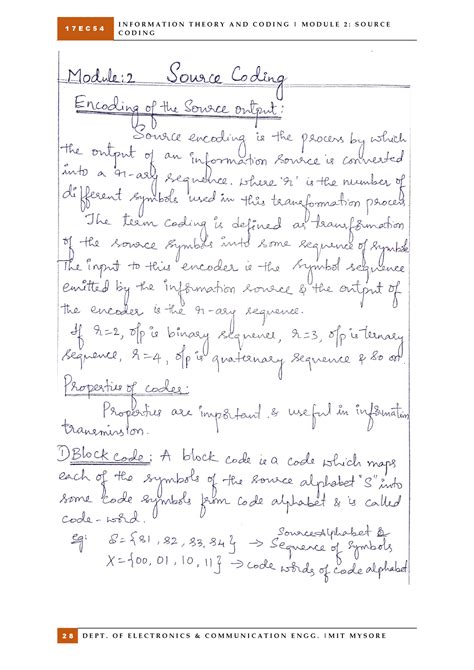 17EC54
INFORMATION THEORY AND CODING | MODULE 2: SOURCE
CODING
Module:2 Source Coding
Encoding of the Source output:
Source encoding is the process by which
the output of an information source is converted
into a r-ary sequence. where 'r' is the number of
different symbols used in this transformation process
The term coding is defined as transformation
of the source symbols into some sequence of symbols
The input to this encoder is the symbol sequence
emitted by the information source & the output of
the encoder is the r-ary sequence.
If r=2, o/p is binary sequence, r=3, o/p is ternary
sequence, r=4, o/p is quaternary sequence & so on.
Properties of codes:
Properties are important & useful in information
transmission.
1) Block code: A block code is a code which maps
each of the symbols of the source alphabet "S" into
some code symbols from code alphabet & is called
code-word.
Source Alphabet &
Eg: S={S1, S2, S3, S4} → Sequence of Symbols
X={00, 01, 10, 11} → code words of code alphabet.
28 DEPT. OF ELECTRONICS & COMMUNICATION ENGG. |MIT MYSORE